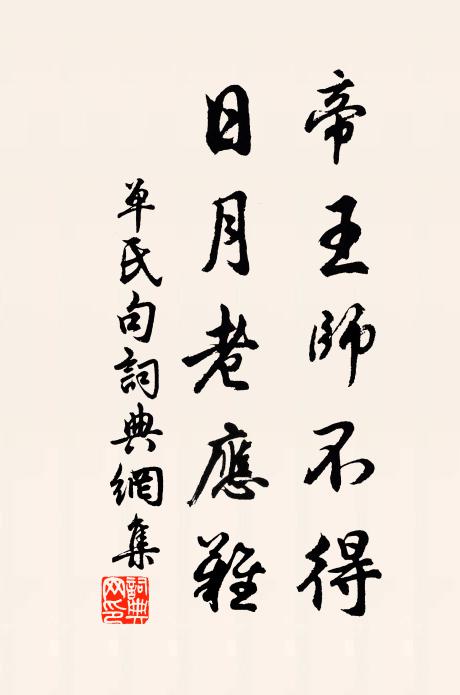 帝王師不得
日月老應難
單氏句詞典網集
詞典網印